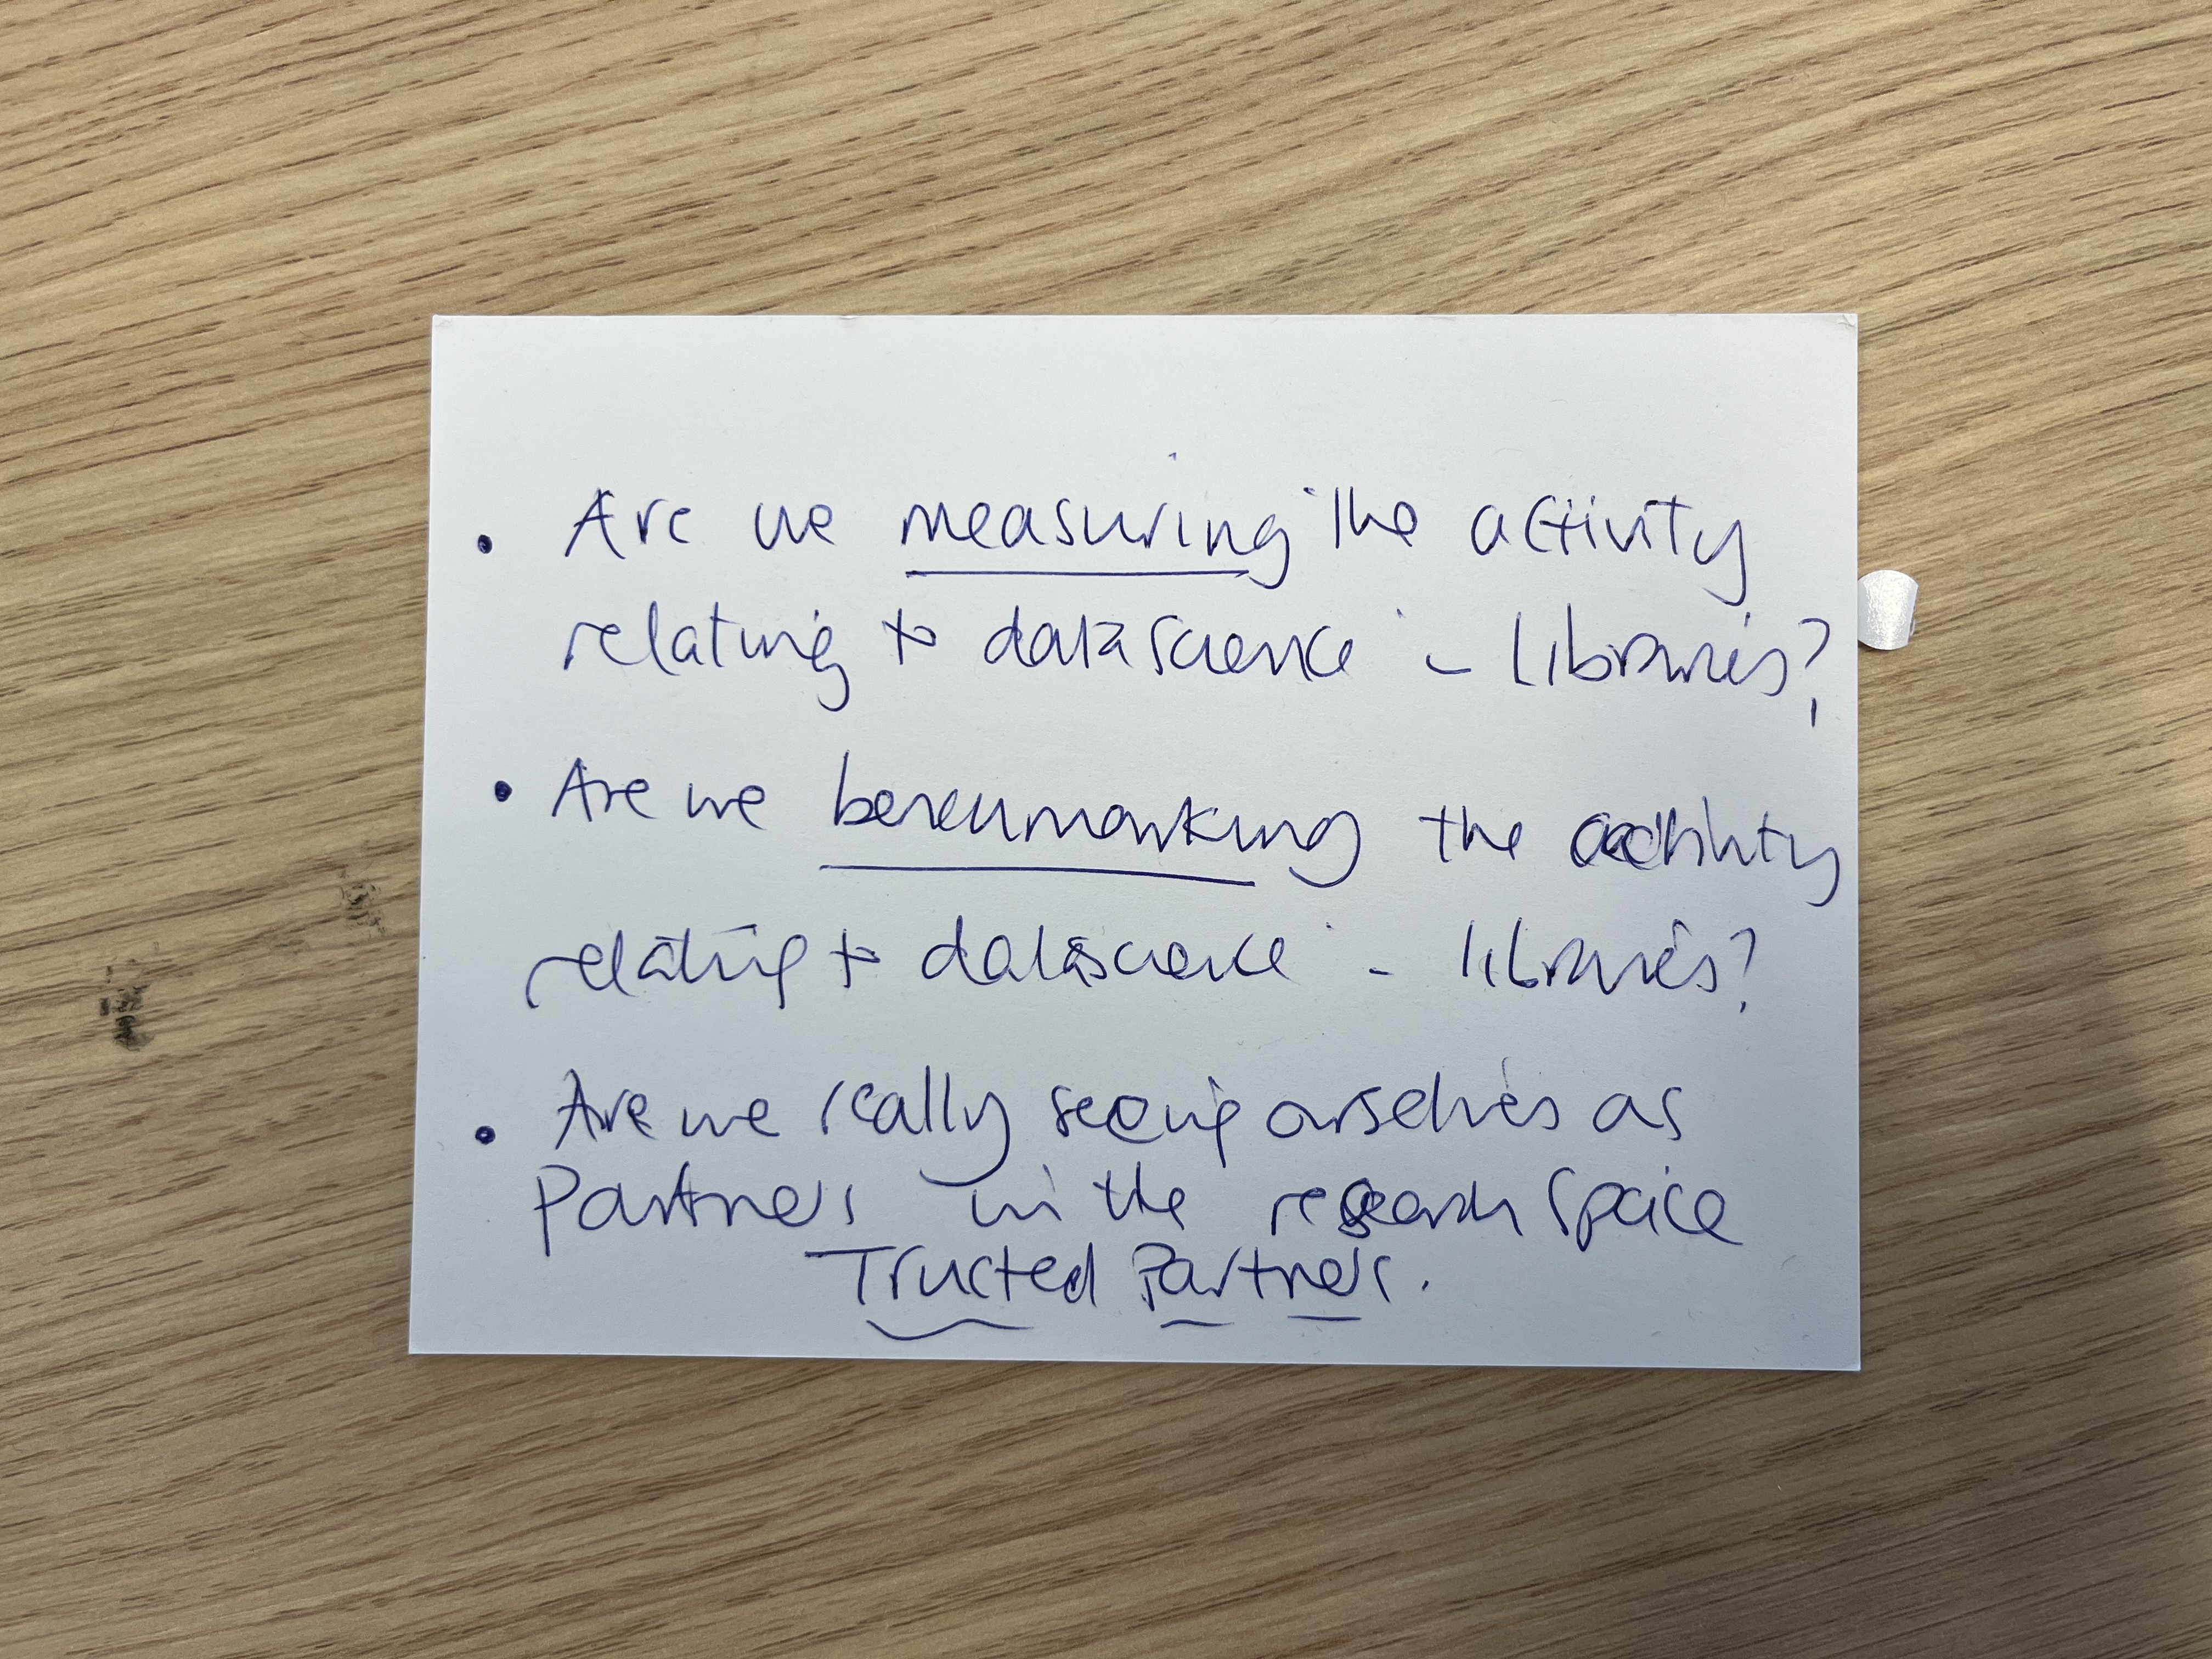 • Are we measuring the activity
relating to data science - libraries?
• Are we benchmarking the activity
relating to data science - libraries?
• Are we really seeing ourselves as
Partners in the research space
Trusted Partners.